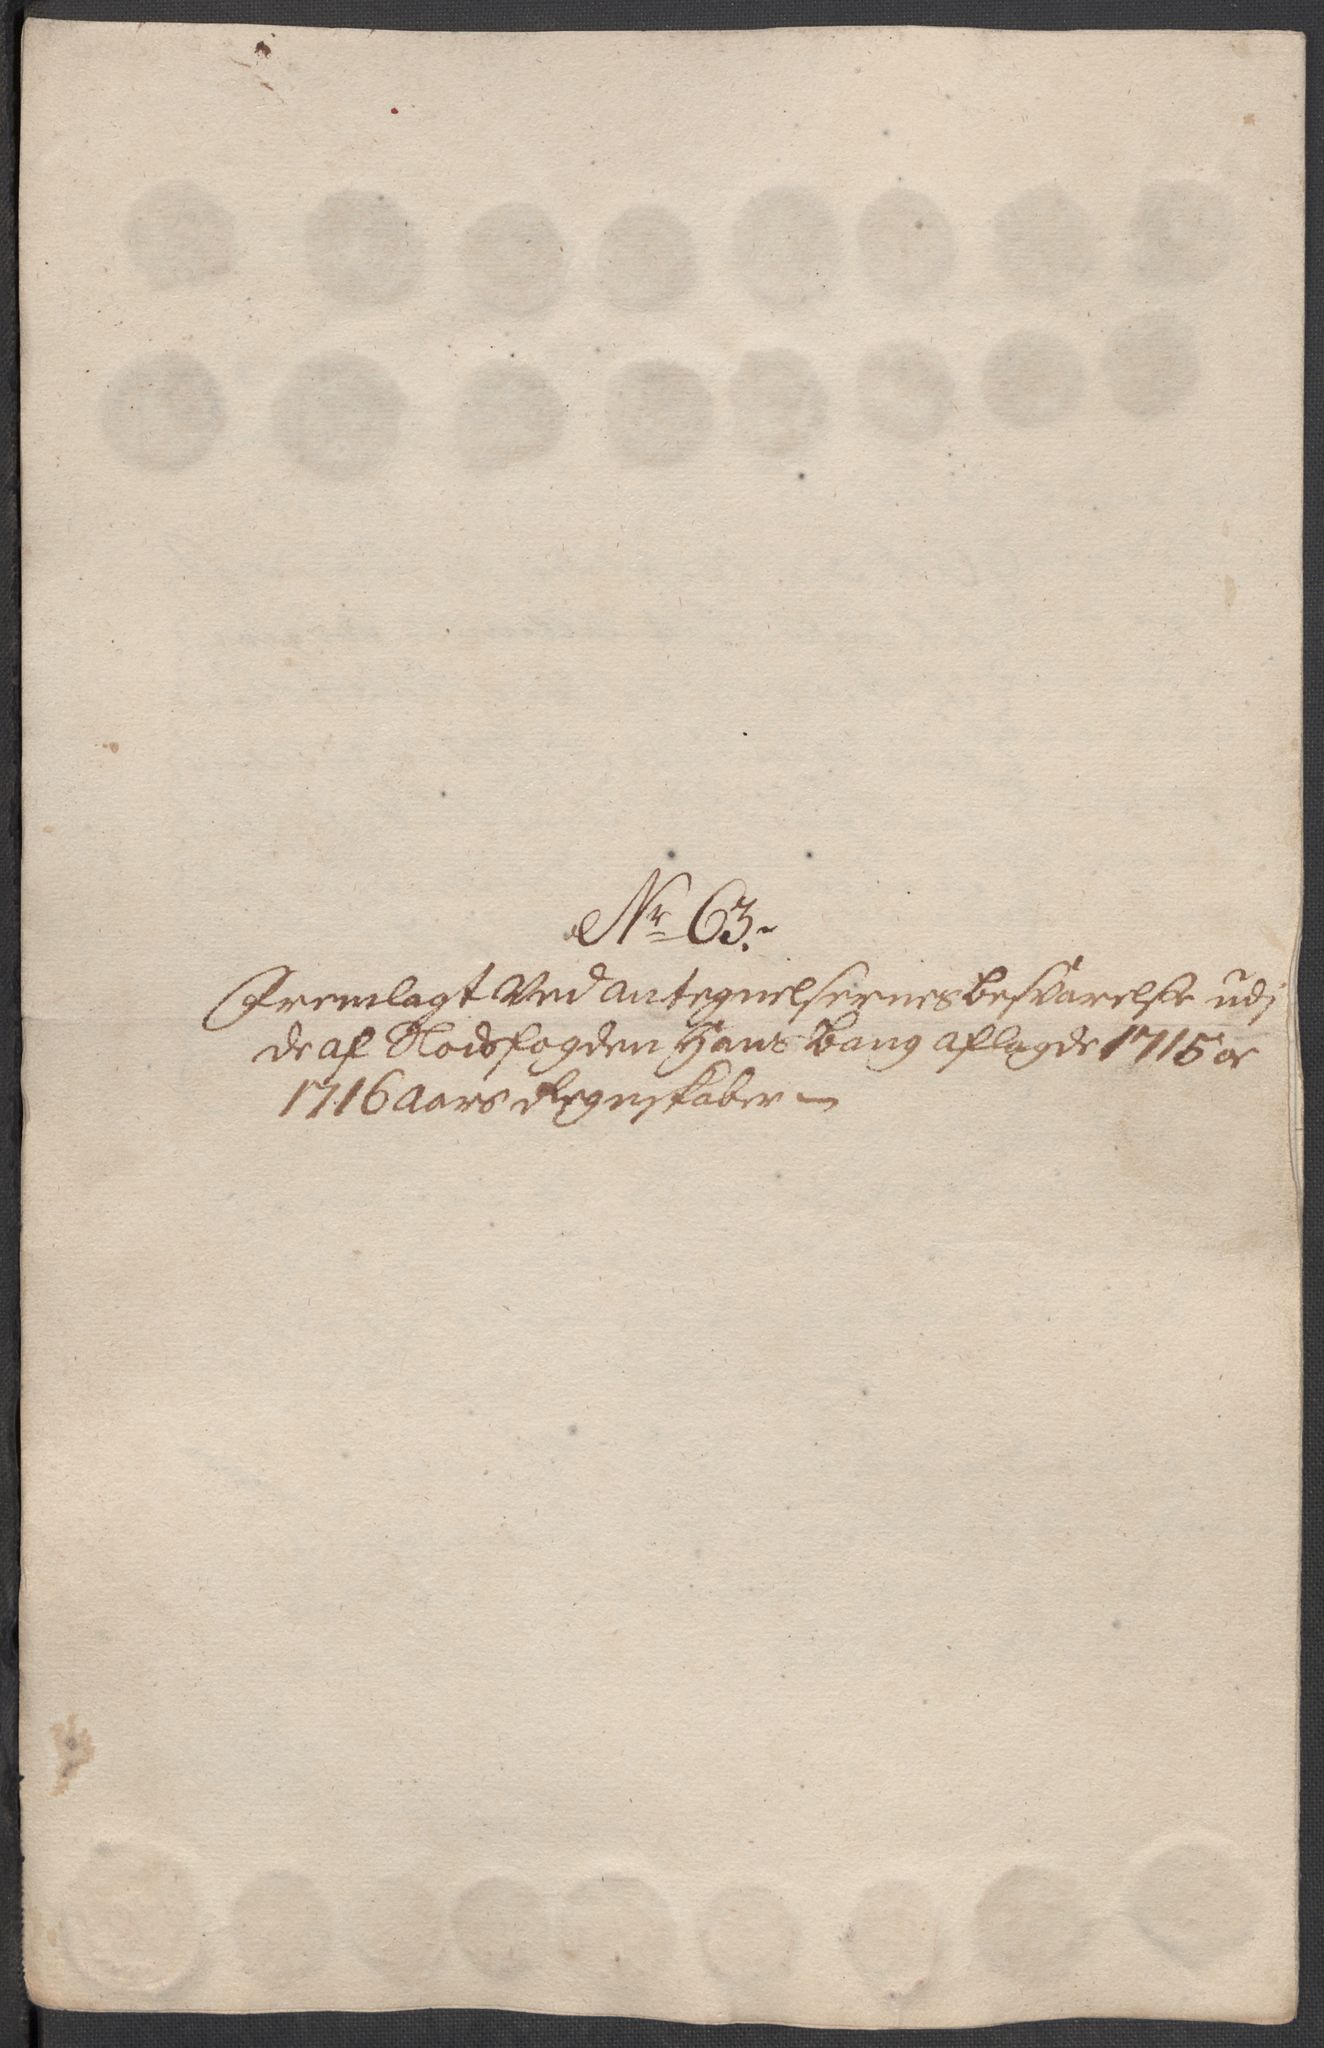 Nr 63.
Fremlagt Ved antegnelsernes besvarelse udj
de af Fogden Hans Bang aflagde 1715 og
1716 Aars Regnskaber